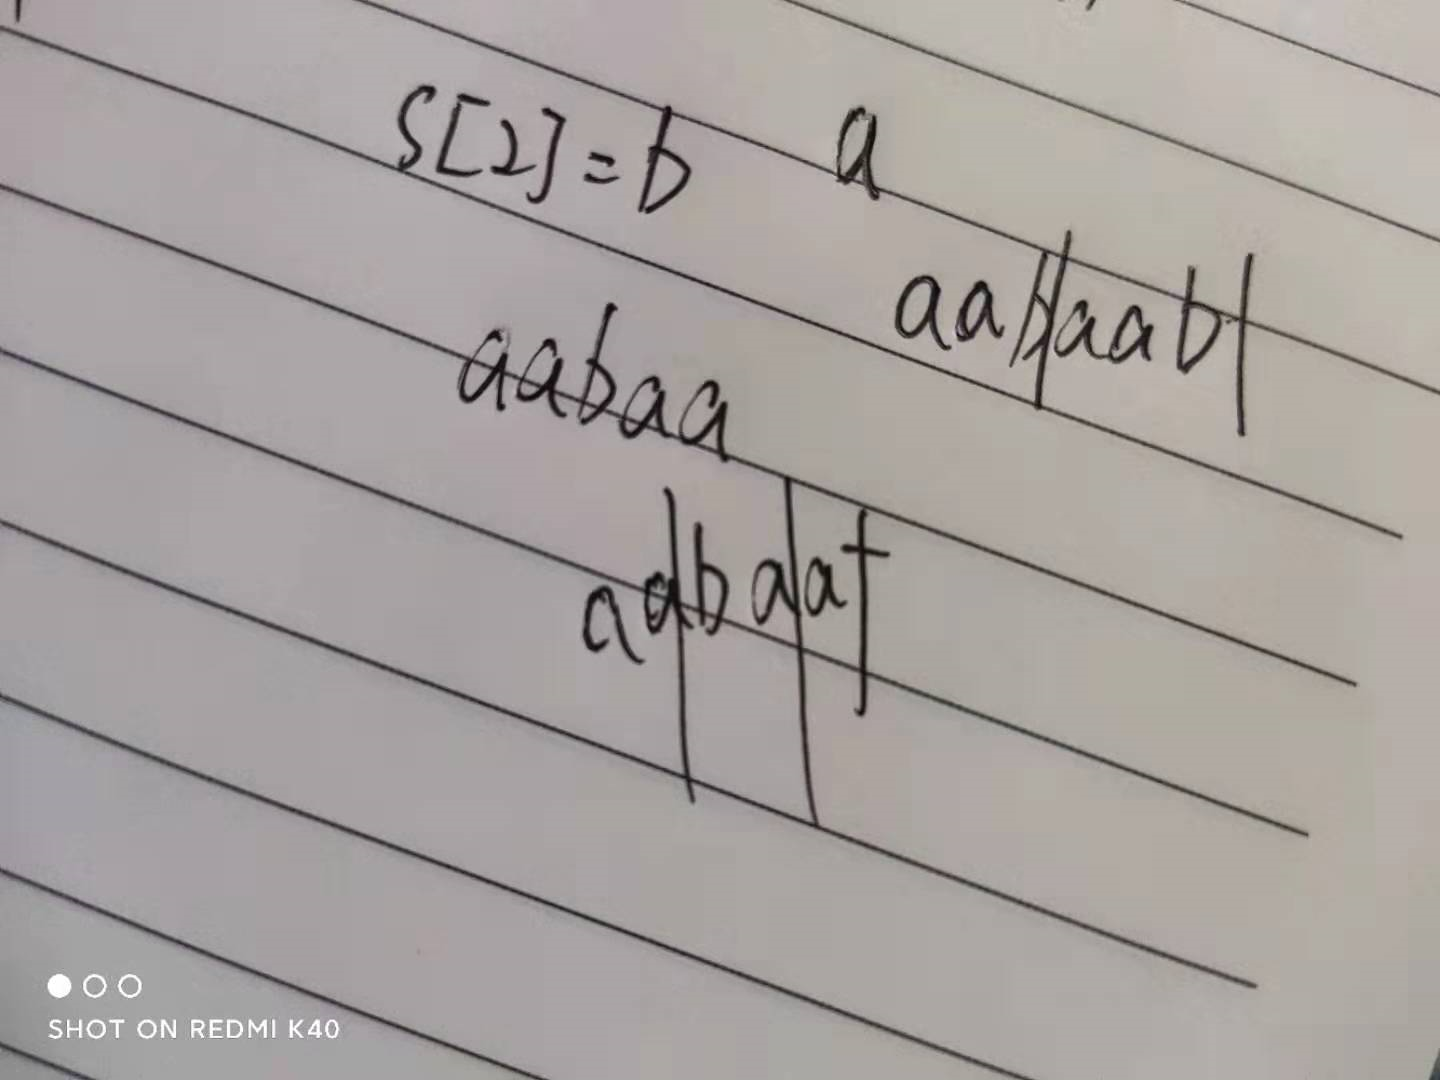 S[2]=b a
aab|aab|
aabaa
aa|ba|a†
SHOT ON REDMI K40